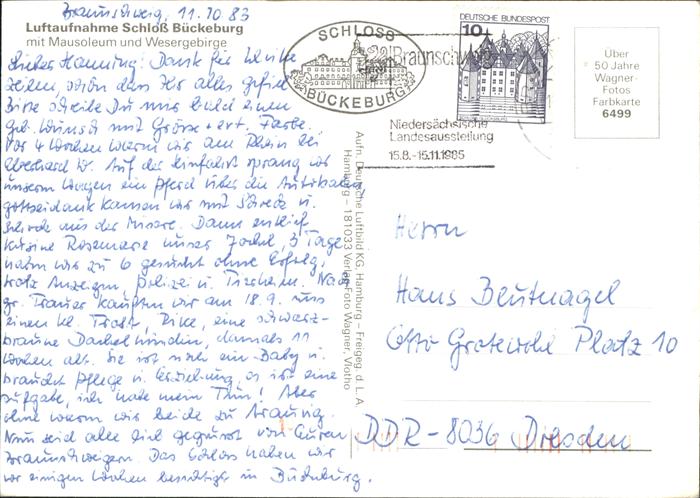 Braunschweig, 11.10.83
Luftaufnahme Schloß Bückeburg
mit Mausoleum und Wesergebirge
Lieber Hansmy! Dank für Deine
Zeilen, schön dass Ihr alles
Bitte schreibe Du mir bald einen
geb. Wunsch mit Grösse + evt. Farbe.
Vor 4 Wochen waren wir am Rhein bei
Eberhard W. Auf der Einfahrt sprang vor
unserm Wagen ein Pferd über die Autobahn
gottseidank kamen wir mit Schreck u.
aus der Misere. Dann entlief
Kusine Rosemarie unser Jockel, 3 Tage
haben wir zu 6 gesucht ohne Erfolg,
trotz Anzeigen, Polizei u. Tierheim. Nach
gr. Trauer kauften wir am 18.9. uns
einen kl. Trost, Rike, eine schwarz-
braune Dackelhündin, damals 11
Wochen alt. Sie ist noch ein Baby u.
braucht Pflege u. Erziehung, es ist eine
Aufgabe, ich habe mein Tun! Aber
ohne waren wir beide zu traurig.
Nun seid alle lieb gegrüsst von Euren
Braunschweigern. Das Schloss haben wir
vor einigen Wochen besichtigt in Bückeburg.
SCHLOSS
BÜCKEBURG
Braunschweig
Niedersächsische
Landesausstellung
15.8.-15.11.1985
DEUTSCHE BUNDESPOST
10
Über
50 Jahre
Wagner-
Fotos
Farbkarte
6499
Aufn. Deutsche Luftbild KG, Hamburg – Freigeg. d. L. A.
Hamburg – 181033 Verlag Foto Wagner, Vlotho
Herrn
Hans Blutnagel
Otto Grotewohl Platz 10
DDR-8036 Dresden